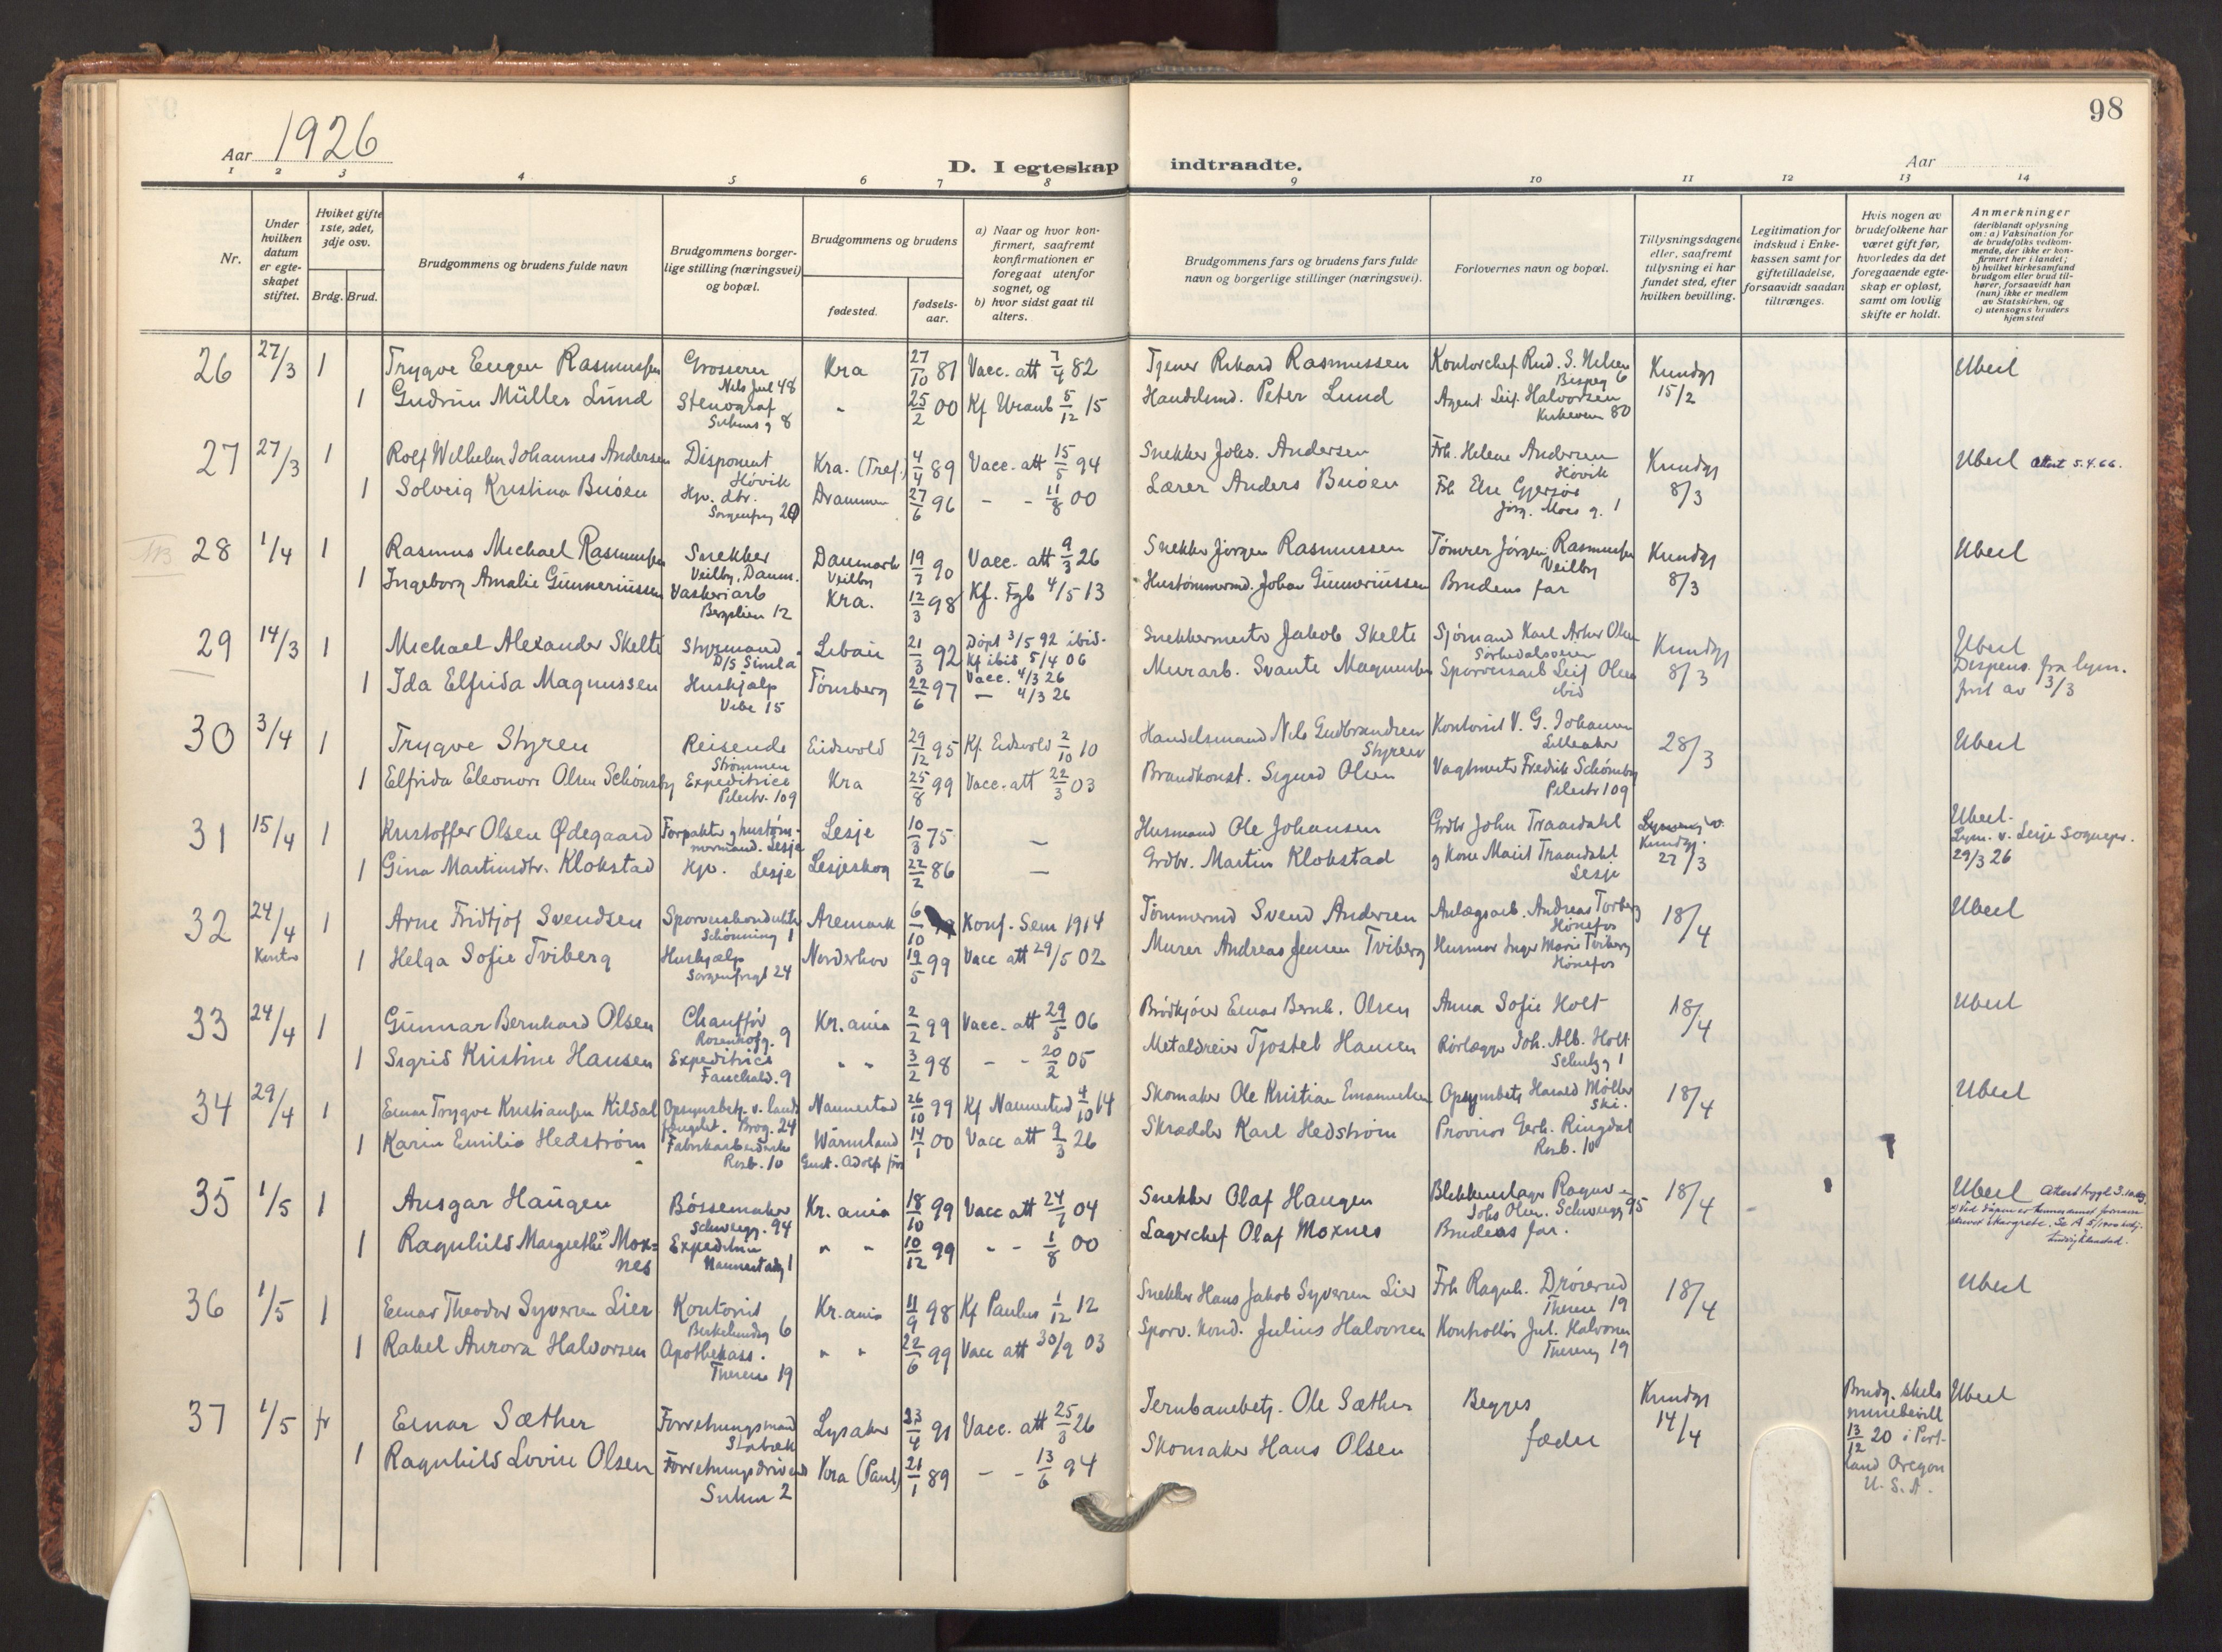 98
Aar 1926
D. I egteskap indtraadte.
Aar
1 2 3 4 5 6 7 8 9 10 11 12 13 14
Nr.
Under hvilken datum er egteskapet stiftet.
Hviket gifte 1ste, 2det, 3dje osv.
Brdg. Brud.
Brudgommens og brudens fulde navn
Brudgommens borgerlige stilling (næringsvei) og bopæl.
Brudgommens og brudens
fødested.
fødselsaar.
a) Naar og hvor konfirmert, saafremt konfirmationen er foregaat utenfor sognet, og
b) hvor sidst gaat til alters.
Brudgommens fars og brudens fars fulde navn og borgerlige stillinger (næringsvei).
Forlovernes navn og bopæl.
Tillysningsdagene eller, saafremt tillysning ei har fundet sted, efter hvilken bevilling.
Legitimation for indskud i Enkekassen samt for giftetilladelse, forsaavidt saadan tiltrænges.
Hvis nogen av brudefolkene har været gift før, hvorledes da det foregaaende egteskap er opløst, samt om lovlig skifte er holdt.
Anmerkninger (deriblandt oplysning om: a) Vaksination for de brudefolks vedkommende, der ikke er konfirmert her i landet; b) hvilket kirkesamfund brudgom eller brud tilhører, forsaavidt han (hun) ikke er medlem av Statskirken, og c) utensogns bruders hjemsted
26 27/3 1 Trygve Eugen Rasmussen Grosserer Nels Juel 48 Kra 27/10 81 Vacc. att 7/4 82 Tjener Rikard Rasmussen Kontorchef Rud. S. Nilsen Bispeg 6 Kundgj 15/2 Ubeil
1 Gudrun Müller Lund Stenograf Suhms g 8 " 25/2 00 Kf Uranb 5/12 15 Handelsmd. Peter Lund Agent Leif Halvorsen Kirkeveien 80
27 27/3 1 Rolf Wilhelm Johannes Andersen Disponent Høvik Kra. (Tref.) 4/4 89 Vacc. att 15/5 94 Snekker Johs. Andersen Frk. Helene Andersen Høvik Kundgj 8/3 Ubeil Attest 5.4.66.
1 Solveig Kristina Buøen Hjv. dtr. Sorgenfrig 20 Drammen 27/6 96 - - 11/8 00 Lærer Anders Buøen Frk Else Gjersøe Jørg. Moes g. 1
28 1/4 1 Rasmus Michael Rasmussen Snekker Veilby, Danm. Danmark Veilby 19/7 90 Vacc. att 9/3 26 Snekker Jørgen Rasmussen Tømrer Jørgen Rasmussen Veilby Kundgj 8/3 Ubeil
1 Ingeborg Amalie Günneriüssen Vaskeriarb Bergslien 12 Kra. 12/3 98 Kf. Fgb 4/5 13 Hustømmermd. Johan Günneriüssen Brudens far
29 14/3 1 Michael Alexander Skelte Styrmand D/S Simla Libau 21/3 92 Døpt 3/5 92 ibid. Kf ibid 5/4 06 Vacc. 4/3 26 Snekkermester Jakob Skelte Sjømand Karl Artur Olsen Sørkedalsveien Kundgj 8/3 Ubeil Dispens. fra lysn. frist av 3/3
1 Ida Elfrida Magnussen Hushjælp Vibe 15 Tønsberg 22/6 97 — 4/3 26 Murarb. Svante Magnussen Sporveisarb Leif Olsen ibid
30 3/4 1 Trygve Styren Reisende Strømmen Eidsvold 29/12 95 Kf Eidsvold 2/10 10 Handelsmand Nils Gudbrandsen Styren Kontorist V. G. Johansen Lilleaker 28/3 Ubeil
1 Elfrida Eleonora Olsen Schønsby Expeditrice Pilestr. 109 Kra 25/8 99 Vacc. att 22/3 03 Brandkonst. Sigurd Olsen Vagtmester Fredrik Schønsby Pilestr 109
31 15/4 1 Kristoffer Olsen Ødegaard Forpakter g hustømmermand. Lesje Lesje 10/3 75 — Husmand Ole Johansen Grdbr John Traandahl Lysning v. Kundgj. 27/3 Ubeil. Lysn. v. Lesje Sognepr. 29/3 26
1 Gina Martinsdtr. Klokstad Hjv. Lesje Lesjeskog 22/2 86 — Grdbr. Martin Klokstad g Kone Marit Traandahl Lesje
32 24/4 Kontor 1 Arne Fridtjof Svendsen Sporveiskonduktør Schønning 1 Aremark 6/10 Konf. Sem 1914 Tømmermd Svend Andersen Anlægsarb. Andreas Torberg Hønefos 18/4 Ubeil
1 Helga Sofie Tviberg Hushjælp Sorgenfrigt 24 Norderhov 19/5 99 Vacc att 29/5 02 Murer Andreas Jensen Tviberg Husmor Inger Marie Tviberg Hønefos
33 24/4 1 Gunnar Bernhard Olsen Chauffør Rosenhofg. 9 Kr.ania 2/2 99 Vacc. att 29/5 06 Brødkjører Einar Bernh. Olsen Anna Sofie Holt 18/4 Ubeil
1 Sigrid Kristine Hansen Expeditrice Fauchald. 9 " " 3/2 98 - - 20/2 05 Metaldreier Tjostel Hansen Rørlægger Joh. Alb. Holt Schultzg 1
34 29/4 1 Einar Trygve Kristiansen Kildal Opsynsbetj. v. landsfængslet. Brog. 24 Nannestad 26/10 99 Kf Nannestad 4/10 14 Skomaker Ole Kristian Emanuelsen Opsynsbetj Harald Møller Ski. 18/4 Ubeil
1 Karin Emilia Hedstrøm Fabrikarbeiderske Rosb. 10 Wärmland Gust. Adolf förs 14/1 00 Vacc att 9/3 26 Skrædder Karl Hedstrøm Provisor Gerh. Ringdal Rosb. 10
35 1/5 1 Ansgar Haugen Bøssemaker Schweigg. 94 Kr.ania 18/10 99 Vacc att 24/7 04 Snekker Olaf Haugen Blikkenslager Ragnv Johs Olsen. Schweigg 95 18/4 Ubeil
1 Ragnhild Margrethe Moxnes Expeditrice Nannestadg 1 " " 10/12 99 - - 1/8 00 Lagerchef Olaf Moxnes Brudens far.
36 1/5 1 Einar Theodor Syversen Lier Kontorist Birkelundsg 6 Kr.ania 11/9 98 Kf Paulus 1/12 12 Snekker Hans Jakob Syversen Lier Frk Ragnh. Drøserud Therese 19 18/4 Ubeil
1 Rakel Aurora Halvorsen Apothekass. Therese 19 " " 22/6 99 Vacc att 30/9 03 Sporv. kond. Julius Halvorsen Kontrollør Jul. Halvorsen Thereseg 19
37 1/5 fr Einar Sæther Forretningsmand Stabæk Lysaker 23/4 91 Vacc. att 25/3 26 Jernbanebetj. Ole Sæther Begges Kundgj 14/4 Brudg. skilsmissebevill 13/12 20 i Portland Oregon U.S.A. Ubeil
1 Ragnhild Lovise Olsen Forretningsdrivende Suhm 2 Kra (Paul) 21/1 89 - - 13/6 94 Skomaker Hans Olsen fædre